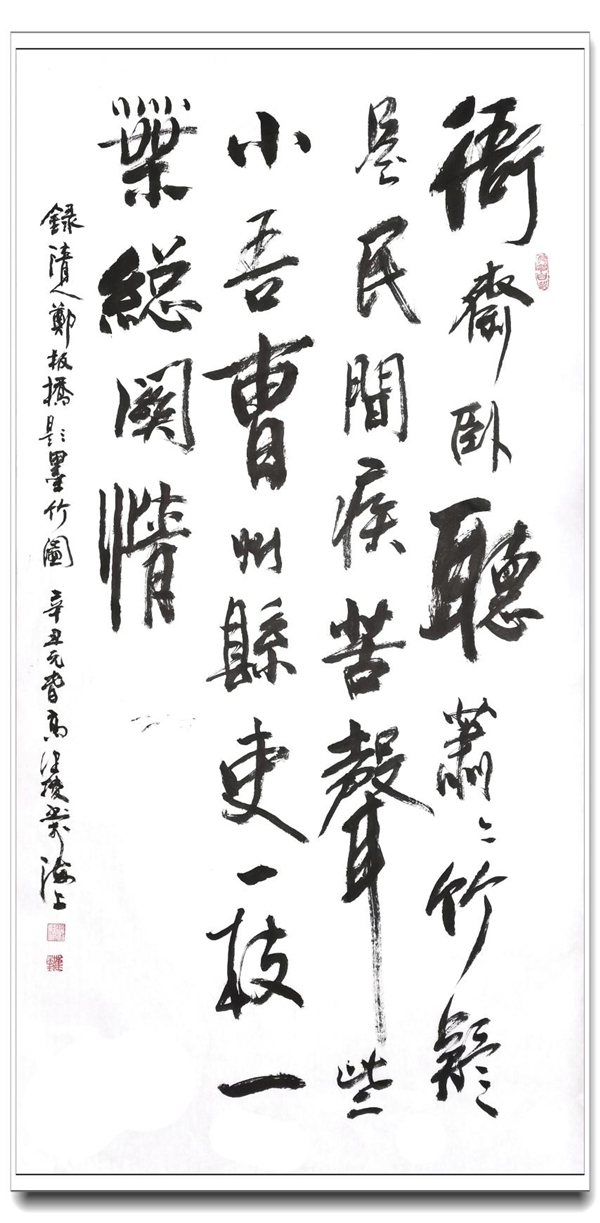 衙齋卧聽蕭〻竹疑
是民間疾苦聲些
小吾曹州縣吏一枝一
葉總關情
錄清人鄭板橋題墨竹圖 辛丑元春高 海上